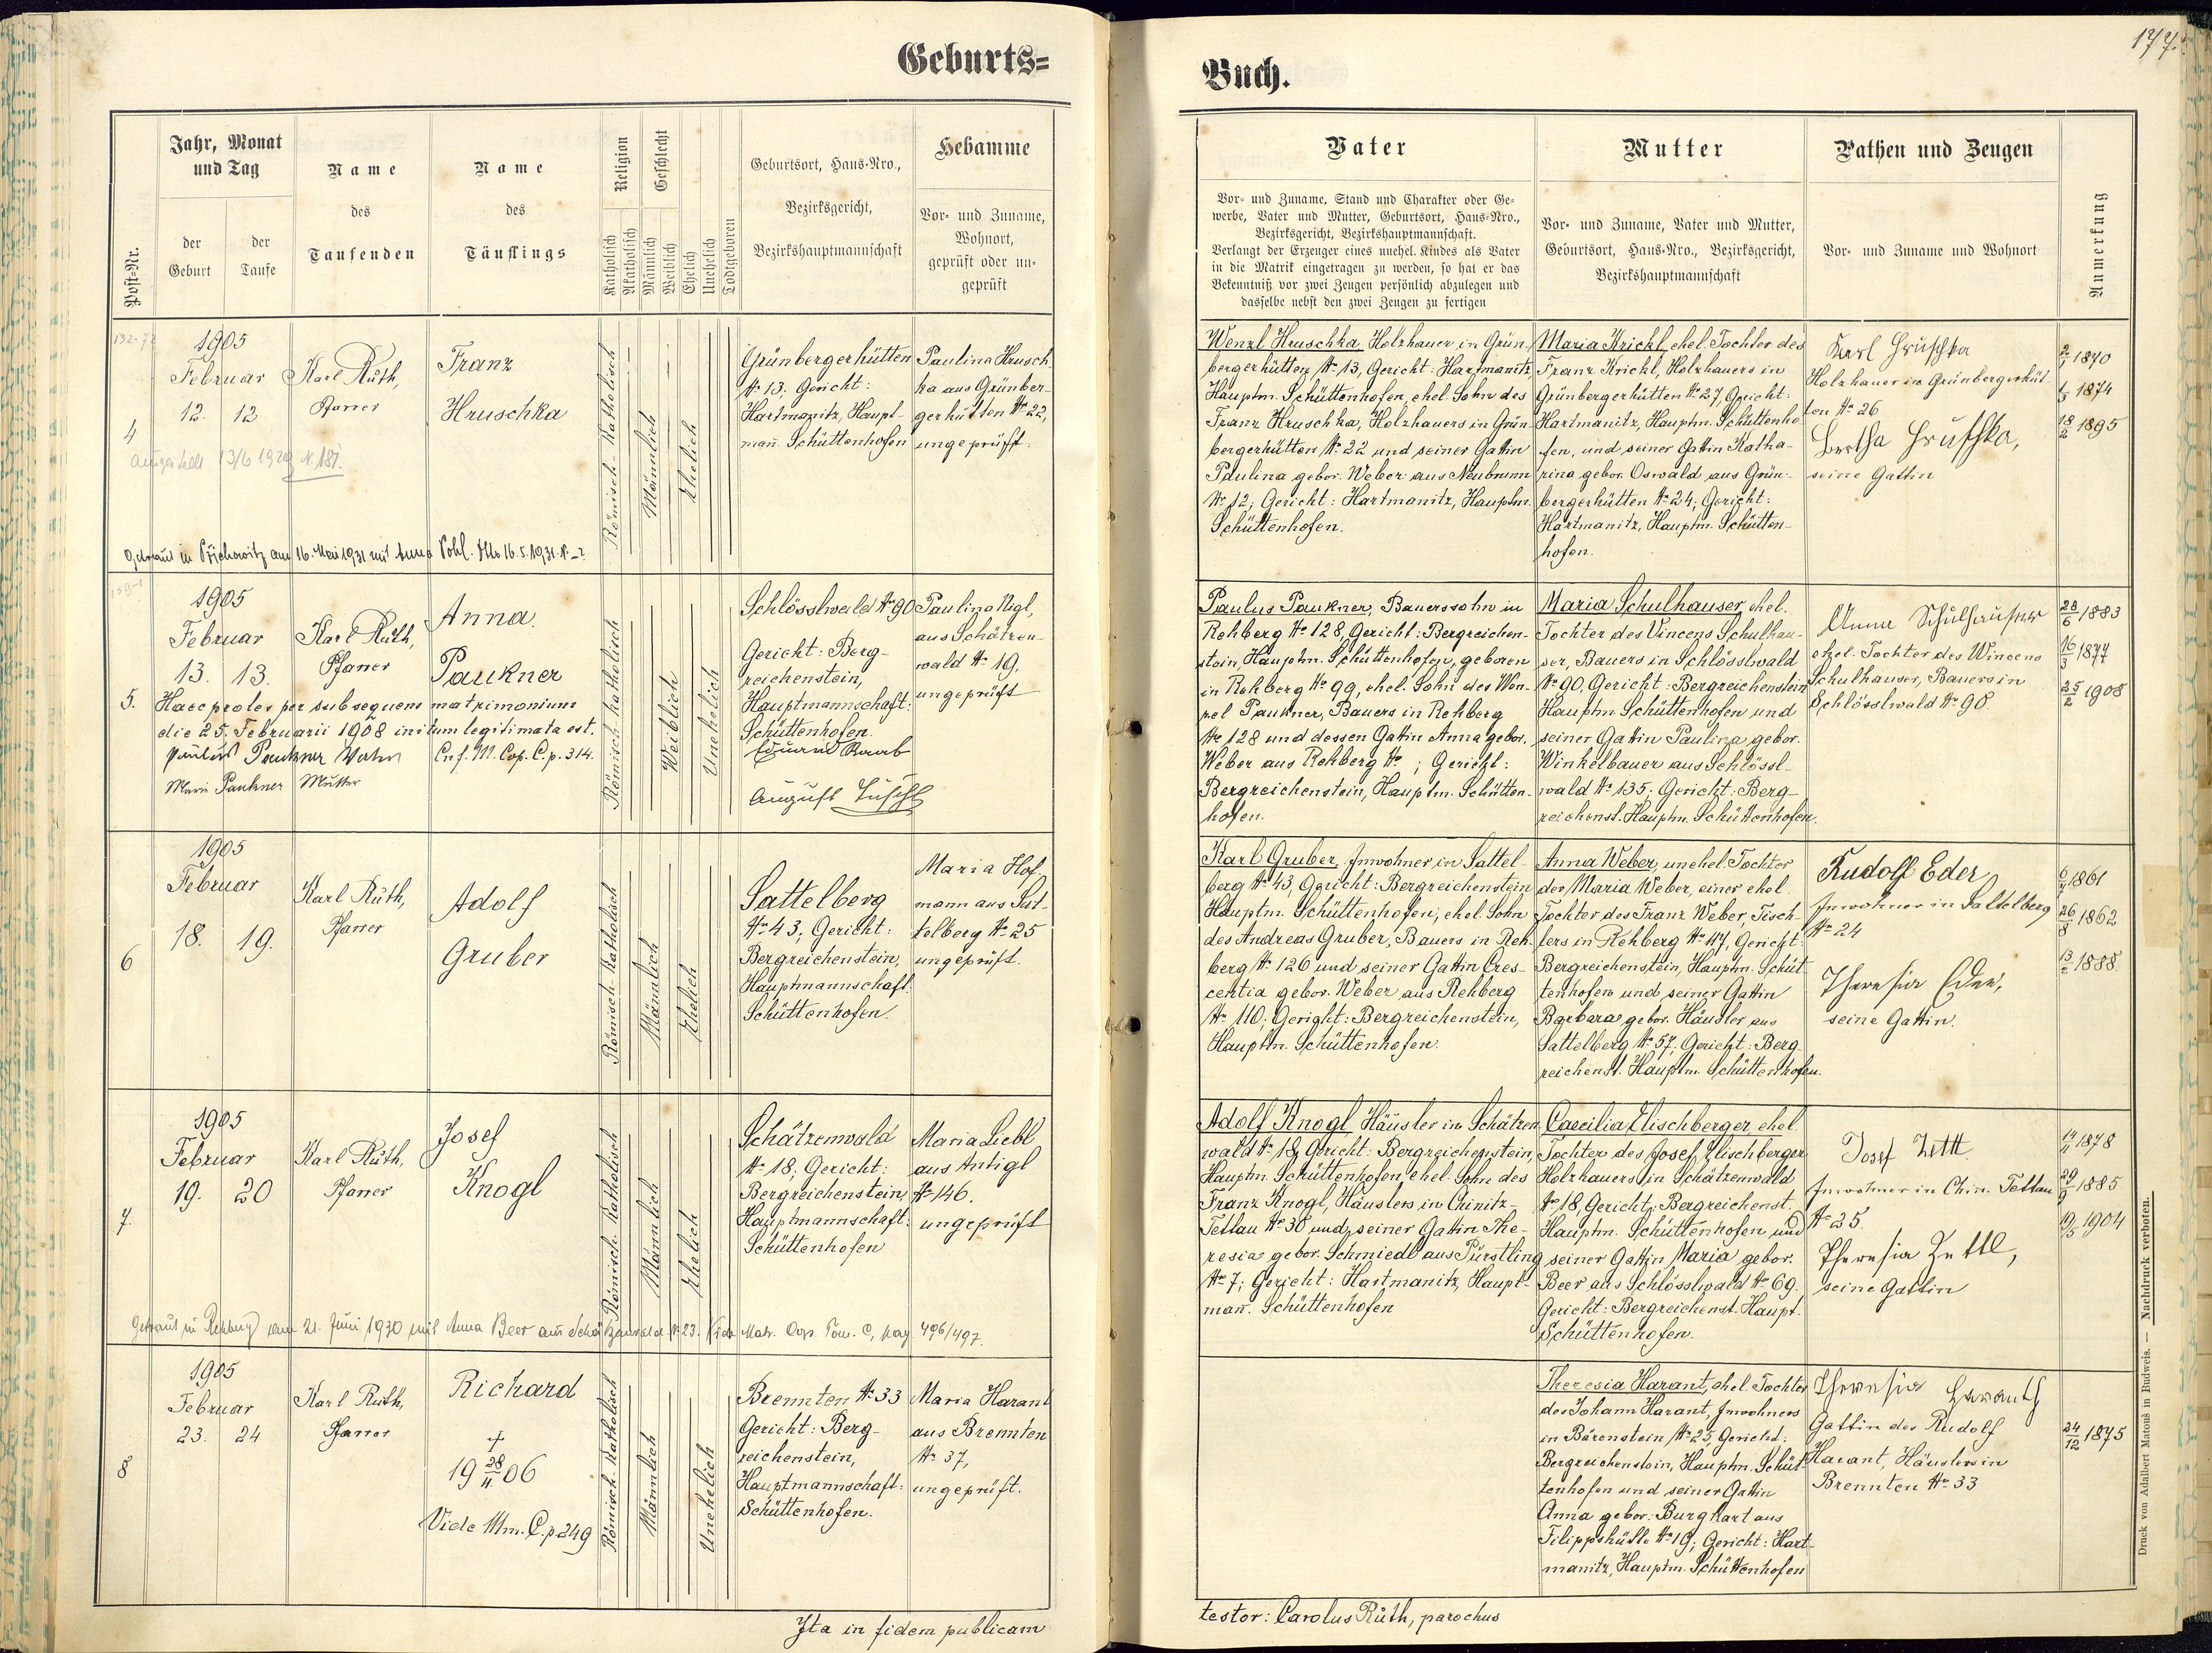 Geburts=
Post-Nr.
Jahr, Monat
und Tag
der
Geburt
der
Taufe
Name
des
Taufenden
Name
des
Täuflings
Religion
Katholisch
Akatholisch
Geschlecht
Männlich
Weiblich
Ehelich
Unehelich
Todtgeboren
Geburtsort, Haus-Nro.,
Bezirksgericht,
Bezirkshauptmannschaft
Hebamme
Vor- und Zuname,
Wohnort,
geprüft oder un-
geprüft
4
1905
Februar
12. 12
Karl Rüth,
Pfarrer
Franz
Hruschka
Römisch-Katholisch
Männlich
Ehelich
Grünbergerhütten
№ 13, Gericht:
Hartmanitz, Haupt-
man̄. Schüttenhofen
Paulina Hrusch
ka aus Grünber-
gerhütten № 22,
ungeprüft.
13/6 1929 N. 181.
Getraut in Přichowitz am 16. Mai 1931 mit Anna Pohl. 16.5.1931.
5.
1905
Februar
13. 13.
Karl Rüth,
Pfarrer
Anna
Paukner
Römisch-katholisch
Weiblich
Unehelich
Schlösslwald № 90
Gericht: Berg-
reichenstein,
Hauptmannschaft:
Schüttenhofen.
Eduard Raab
August
Paulina Nigl,
aus Schätzen-
wald № 19,
ungeprüft
Haec proles per subsequens matrimonium
die 25. Februarii 1908 initum legitimata est.
Paulus Paukner Vater Cnf. M. Cop. C. p. 314.
Marie Paukner Mutter
6
1905
Februar
18. 19.
Karl Rüth,
Pfarrer
Adolf
Gruber
Römisch-Katholisch
Männlich
Ehelich
Sattelberg
№ 43, Gericht:
Bergreichenstein,
Hauptmannschaft:
Schüttenhofen.
Maria Hof
mann aus Sat-
telberg № 25
ungeprüft.
7.
1905
Februar
19. 20
Karl Rüth,
Pfarrer
Josef
Knogl
Römisch-Katholisch
Männlich
Ehelich
Schätzenwald
№ 18, Gericht:
Bergreichenstein,
Hauptmannschaft:
Schüttenhofen
Maria Liebl
aus Antigl
№ 146.
ungeprüft
Getraut in Rehberg am 21. Juni 1930 mit Anna Beer aus Schätzenwald N. 23. Vide Matr. Cop. Tom. C, pag 496/497.
8
1905
Februar
23. 24
Karl Rüth,
Pfarrer
Richard
+
19 28/4. 06
Vide Mm. C. p. 249
Römisch-Katholisch
Männlich
Unehelich
Brennten № 33
Gericht: Berg-
reichenstein,
Hauptmannschaft:
Schüttenhofen.
Maria Harant
aus Brennten
№ 37,
ungeprüft.
Ita in fidem publicam
177.
Buch.
Vater
Vor- und Zuname, Stand und Charakter oder Ge-
werbe, Vater und Mutter, Geburtsort, Haus-Nro.,
Bezirksgericht, Bezirkshauptmannschaft.
Verlangt der Erzeuger eines unehel. Kindes als Vater
in die Matrik eingetragen zu werden, so hat er das
Bekenntniß vor zwei Zeugen persönlich abzulegen und
dasselbe nebst den zwei Zeugen zu fertigen
Mutter
Vor- und Zuname, Vater und Mutter,
Geburtsort, Haus-Nro., Bezirksgericht,
Bezirkshauptmannschaft
Pathen und Zeugen
Vor- und Zuname und Wohnort
Anmerkung
Wenzl Hruschka, Holzhauer in Grün-
bergerhütten № 13, Gericht: Hartmanitz,
Hauptm. Schüttenhofen, ehel. Sohn des
Franz Hruschka, Holzhauers in Grün-
bergerhütten № 22 und seiner Gattin
Paulina gebor. Weber aus Neubrunn
№ 12; Gericht: Hartmanitz, Hauptm.
Schüttenhofen.
Maria Krickl, ehel. Tochter des
Franz Krickl, Holzhauers in
Grünbergerhütten № 27, Gericht:
Hartmanitz, Hauptm. Schüttenho-
fen, und seiner Gattin Katha-
rina gebor. Oswald aus Grün-
bergerhütten № 24; Gericht:
Hartmanitz, Hauptm. Schütten-
hofen.
Karl Hruschka
Holzhauer in Grünbergerhüt-
ten № 26
Bertha Hruschka,
seine Gattin
1870
1874
18/2 1895
Paulus Paukner, Bauerssohn in
Rehberg № 128, Gericht: Bergreichen-
stein, Hauptm. Schüttenhofen, geboren
in Rehberg № 99, ehel. Sohn des Wen-
zel Paukner, Bauers in Rehberg
№ 128 und dessen Gattin Anna gebor.
Weber aus Rehberg № ; Gericht:
Bergreichenstein, Hauptm. Schütten-
hofen.
Maria Schulhauser, ehel.
Tochter des Vincens Schulhau-
ser, Bauers in Schlösslwald
№ 90, Gericht: Bergreichenstein
Hauptm. Schüttenhofen und
seiner Gattin Paulina gebor.
Winkelbauer aus Schlössl-
wald № 135; Gericht: Berg-
reichenst. Hauptm. Schüttenhofen.
Anna Schulhauser
ehel. Tochter des Wincens
Schulhauser, Bauers in
Schlösslwald № 90.
28/6 1883
16/3 1877
25/2 1908
Karl Gruber, Inwohner in Sattel-
berg № 43, Gericht: Bergreichenstein
Hauptm. Schüttenhofen, ehel. Sohn
des Andreas Gruber, Bauers in Reh-
berg № 126 und seiner Gattin Cres-
centia gebor. Weber aus Rehberg
№ 110; Gericht: Bergreichenstein,
Hauptm. Schüttenhofen.
Anna Weber, unehel. Tochter
der Maria Weber, einer ehel.
Tochter des Franz Weber, Tisch-
lers in Rehberg № 117, Gericht:
Bergreichenstein, Hauptm. Schüt
tenhofen und seiner Gattin
Barbara gebor. Häusler aus
Sattelberg № 57; Gericht: Berg
reichenst. Hauptm. Schüttenhofen.
Rudolf Eder
Inwohner in Sattelberg
№ 24
Theresia Eder,
seine Gattin.
1861
26/8 1862
13/2 1888.
Adolf Knogl, Häusler in Schätzen-
wald № 18, Gericht: Bergreichenstein,
Hauptm. Schüttenhofen, ehel. Sohn des
Franz Knogl, Häuslers in Chinitz-
Tettau № 38 und seiner Gattin The-
resia gebor. Schmiedl aus Pürstling
№ 7; Gericht: Hartmanitz, Haupt-
man̄. Schüttenhofen
Caecilia Elischberger, ehel.
Tochter des Josef Elischberger
Holzhauers in Schätzenwald
№ 18, Gericht: Bergreichenst.
Hauptm. Schüttenhofen und
seiner Gattin Maria gebor.
Beer aus Schlösslwald № 69.
Gericht: Bergreichenst. Haupt.
Schüttenhofen.
Josef Zettl
Inwohner in Chin. Tettau
№ 25.
Theresia Zettl,
seine Gattin
1878
29/9 1885
19/5 1904
Theresia Harant, ehel. Tochter
des Johann Harant, Inwohners
in Bärenstein № 25 Gericht:
Bergreichenstein, Hauptm. Schüt-
tenhofen und seiner Gattin
Anna gebor. Burghart aus
Filippshütte № 19; Gericht: Hart-
manitz, Hauptm. Schüttenhofen
Theresia Haranth
Gattin des Rudolf
Harant, Häuslers in
Brennten № 33
24/12 1875
testor: Carolus Rüth, parochus
Druck von Adalbert Matouš in Budweis. — Nachdruck verboten.